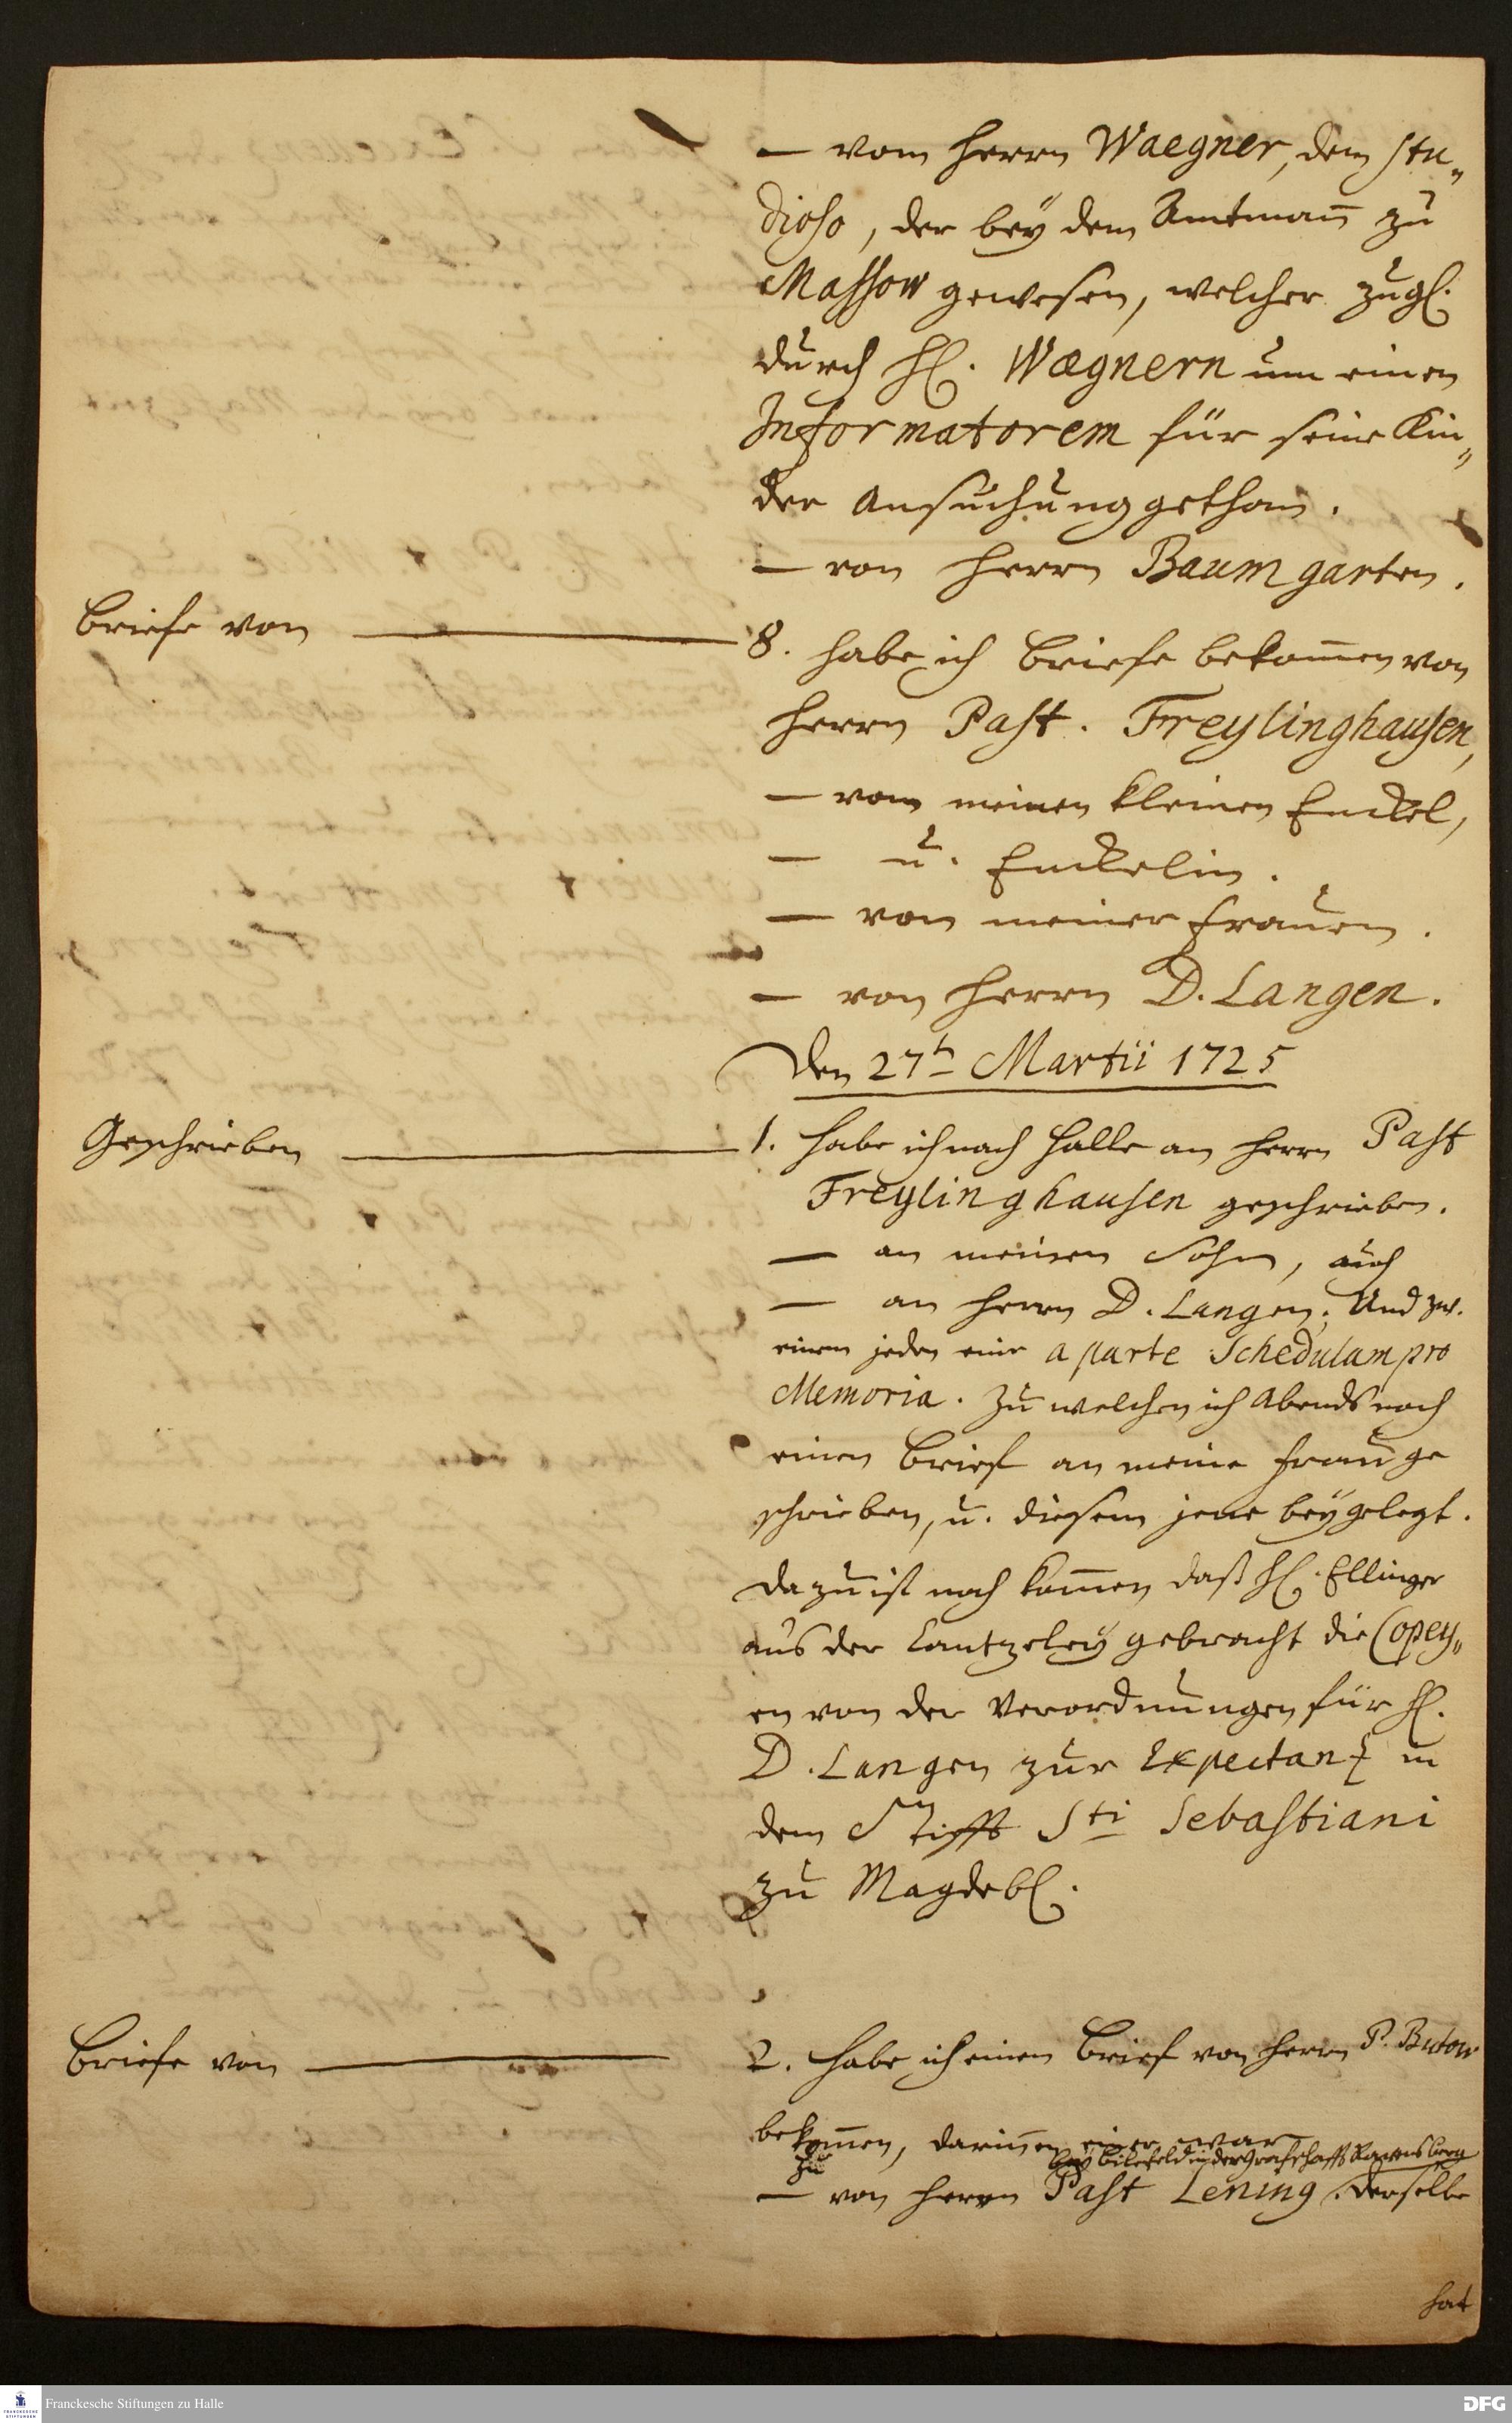 — vom Herrn Waegner, dem Stu„
dioso, der bey dem Amtmañ zu
Massow gewesen, welcher zugl.
durch H. Wægnern um einen
Informatorem für seine Kin„
der Ansuchung gethan.
— von Herrn Baumgarten.
Briefe von — 8. habe ich Briefe bekom̄en von
Herrn Past. Freylinghausen,
— vom meinen kleinen Enckel,
— u. Enckelin.
— von meiner Frauen.
— von Herrn D. Langen.
Den 27t Martii 1725
Geschrieben — 1. habe ich nach Halle an Herrn Past
Freylinghausen geschrieben.
— an meinen Sohn, auch
— an Herrn D. Langen; Und zw.
einem jeden eine a parte Schedulam pro
Memoria. Zu welchen ich Abends noch
einen Brief an meine Frau ge
schrieben, u. diesem jene beygelegt.
Dazu ist noch kom̄en daß H. Ellinger
aus der Cantzeley gebracht die Copey„
en von der Verordnungen für H.
D. Langen zur Expectantz in
dem Stifft Sti Sebastiani
zu Magdeb.
Briefe von — 2. habe ich einen Brief von Herrn P. Butow
bekom̄en, darin̄en einer war
zu bey Bilefeld in der Grafschafft Ravensberg
— von Herrn Past Lening. Derselbe
hat
Franckesche Stiftungen zu Halle
FRANCKESCHE STIFTUNGEN
DFG